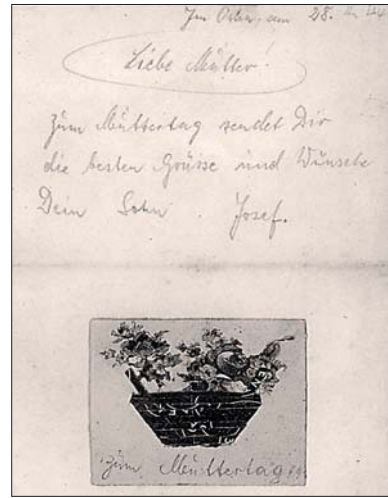 Im Osten, am 28. 44
Liebe Mutter!
Zum Muttertag sendet Dir
die besten Grüsse und Wünsche
Dein Sohn Josef.
Zum Muttertag